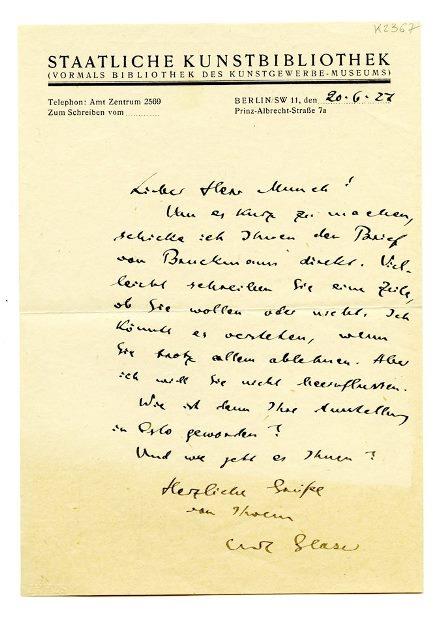 K2367
STAATLICHE KUNSTBIBLIOTHEK
(VORMALS BIBLIOTHEK DES KUNSTGEWERBE-MUSEUMS)
Telephon: Amt Zentrum 2569
Zum Schreiben vom ............
BERLIN/SW 11, den 20·6·27
Prinz-Albrecht-Straße 7a
Lieber Herr Munch!
Um es kurz zu machen,
schicke ich Ihnen den Brief
von Bruckmann direkt. Viel-
leicht schreiben Sie eine Zeile,
ob Sie wollen oder nicht. Ich
könnte es verstehen, wenn
Sie trotz allem ablehnen. Aber
ich will Sie nicht beeinflussen.
Wie ist denn Ihre Ausstellung
in Oslo geworden?
Und wie geht es Ihnen?
Herzliche Grüße
von Ihrem
Curt Glaser